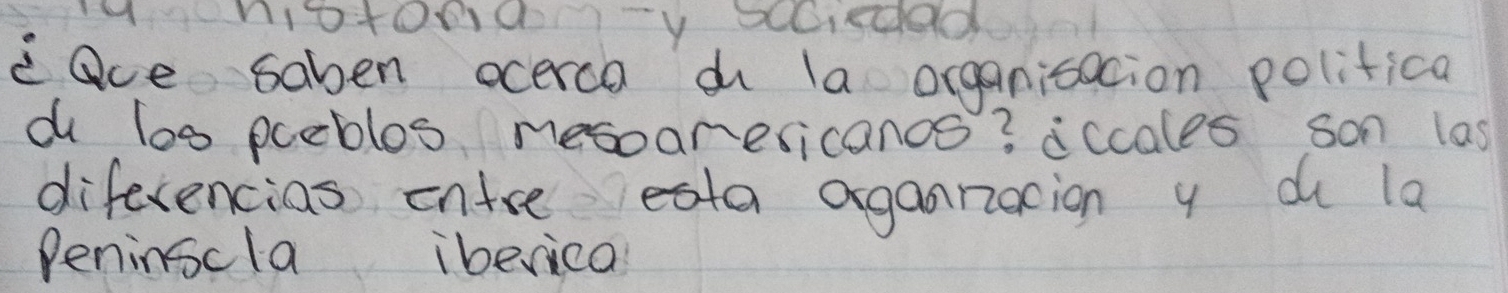 historia y sociedad
¿ Que saben acerca de la organisacion politica
de los pueblos mesoamericanos? ¿cuales son las
diferencias entre esta organizacion y de la
Peninscla iberica